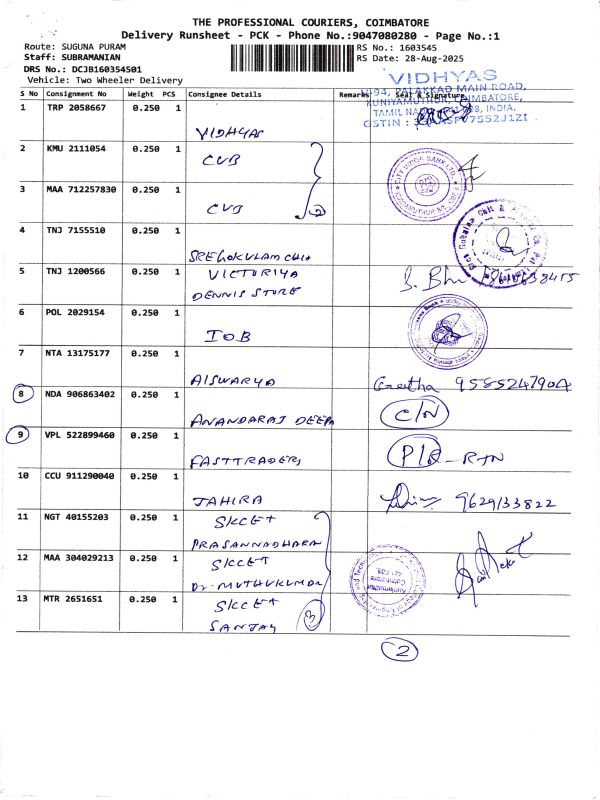 THE PROFESSIONAL COURIERS, COIMBATORE
Delivery Runsheet - PCK - Phone No.:9047080280 - Page No.:1
Route: SUGUNA PURAM
RS No.: 1603545
Staff: SUBRAMANIAN
RS Date: 28-Aug-2025
DRS No.: DCJB160354501
Vehicle: Two Wheeler Delivery
VIDHYAS
PALAKKAD MAIN ROAD,
KUNIYAMUTHUR, COIMBATORE,
S No Consignment No Weight PCS Consignee Details Remarks Seal & Signature
1 TRP 2058667 0.250 1
VIDHYAS
2 KMU 2111054 0.250 1 CUB
CITY UNION BANK LTD.
3 MAA 712257830 0.250 1
CUB 2
4 TNJ 7155510 0.250 1
SREGOKULAM CHIT
5 TNJ 1200566 0.250 1 VICTORIYA
DENNIS STORE
6 POL 2029154 0.250 1
IOB
7 NTA 13175177 0.250 1
AISWARYA Geetha 9585247904
8 NDA 906863402 0.250 1
ANANDARAJ DEEPA C/N
9 VPL 522899460 0.250 1
FASTTRADERS P/R-RTN
10 CCU 911290040 0.250 1
JAHIRA 9629133822
11 NGT 40155203 0.250 1 SKCET
PRASANNADHARA
12 MAA 304029213 0.250 1 SKCET
Dr-MUTHUKUMAR
13 MTR 2651651 0.250 1 SKCET
SANJAY 3
2